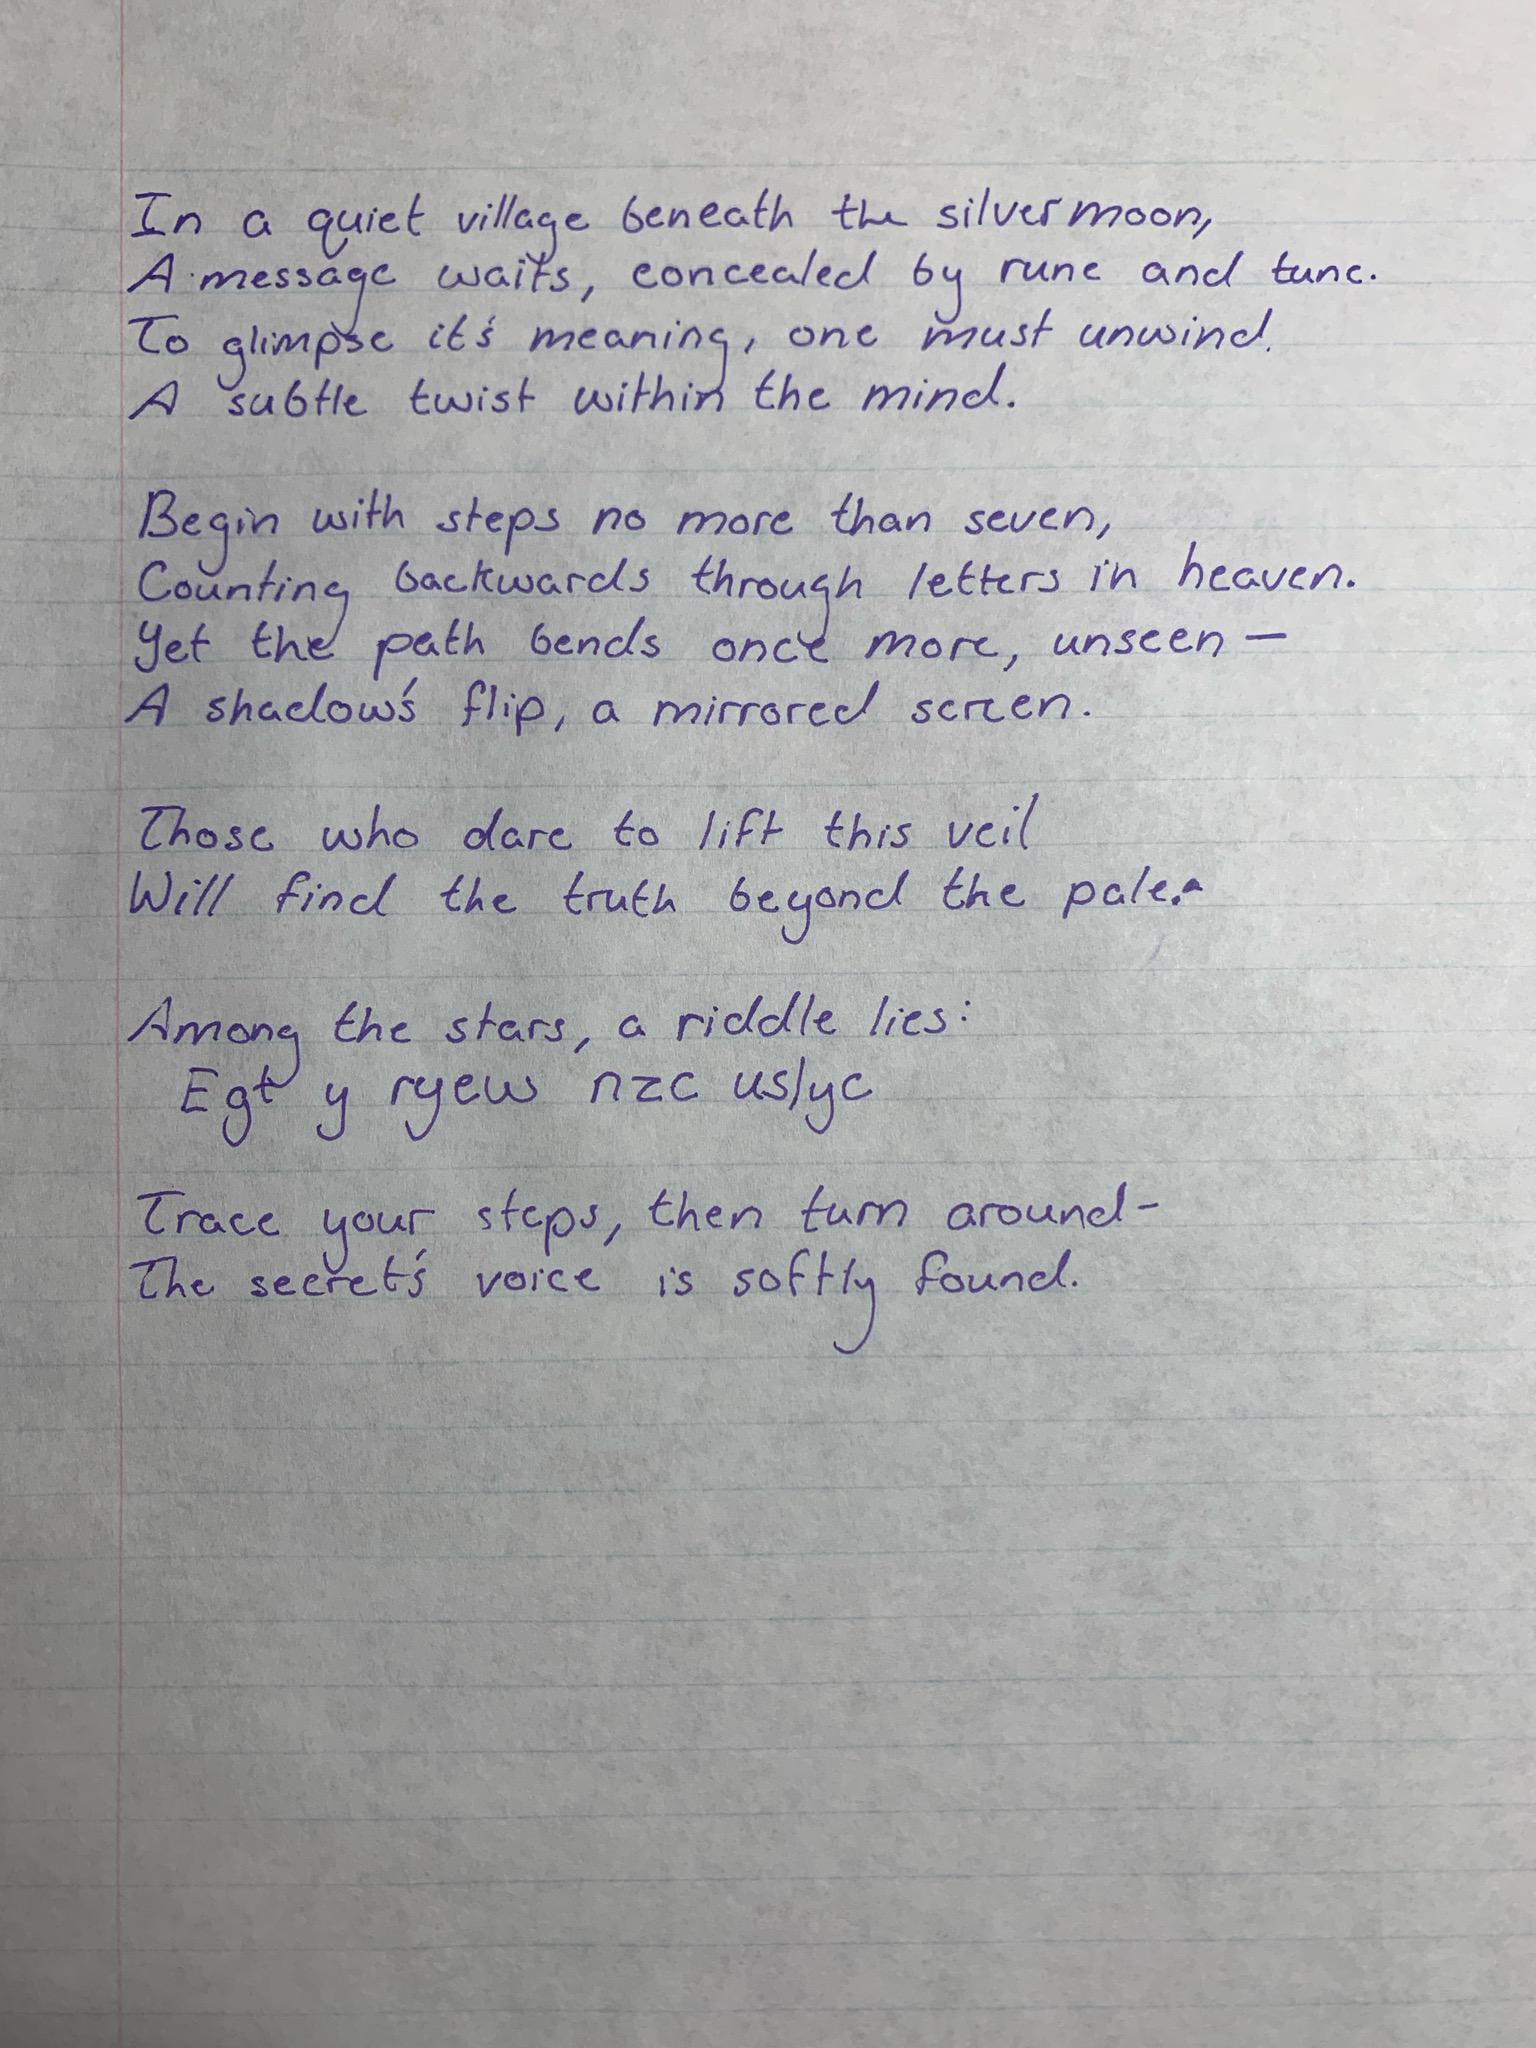 In a quiet village beneath the silver moon,
A message waits, concealed by rune and tune.
To glimpse it's meaning, one must unwind.
A subtle twist within the mind.
Begin with steps no more than seven,
Counting backwards through letters in heaven.
Yet the path bends once more, unseen —
A shadow's flip, a mirrored screen.
Those who dare to lift this veil
Will find the truth beyond the pale.
Among the stars, a riddle lies:
Egt y ryew nzc uslyc
Trace your steps, then turn around-
The secret's voice is softly found.